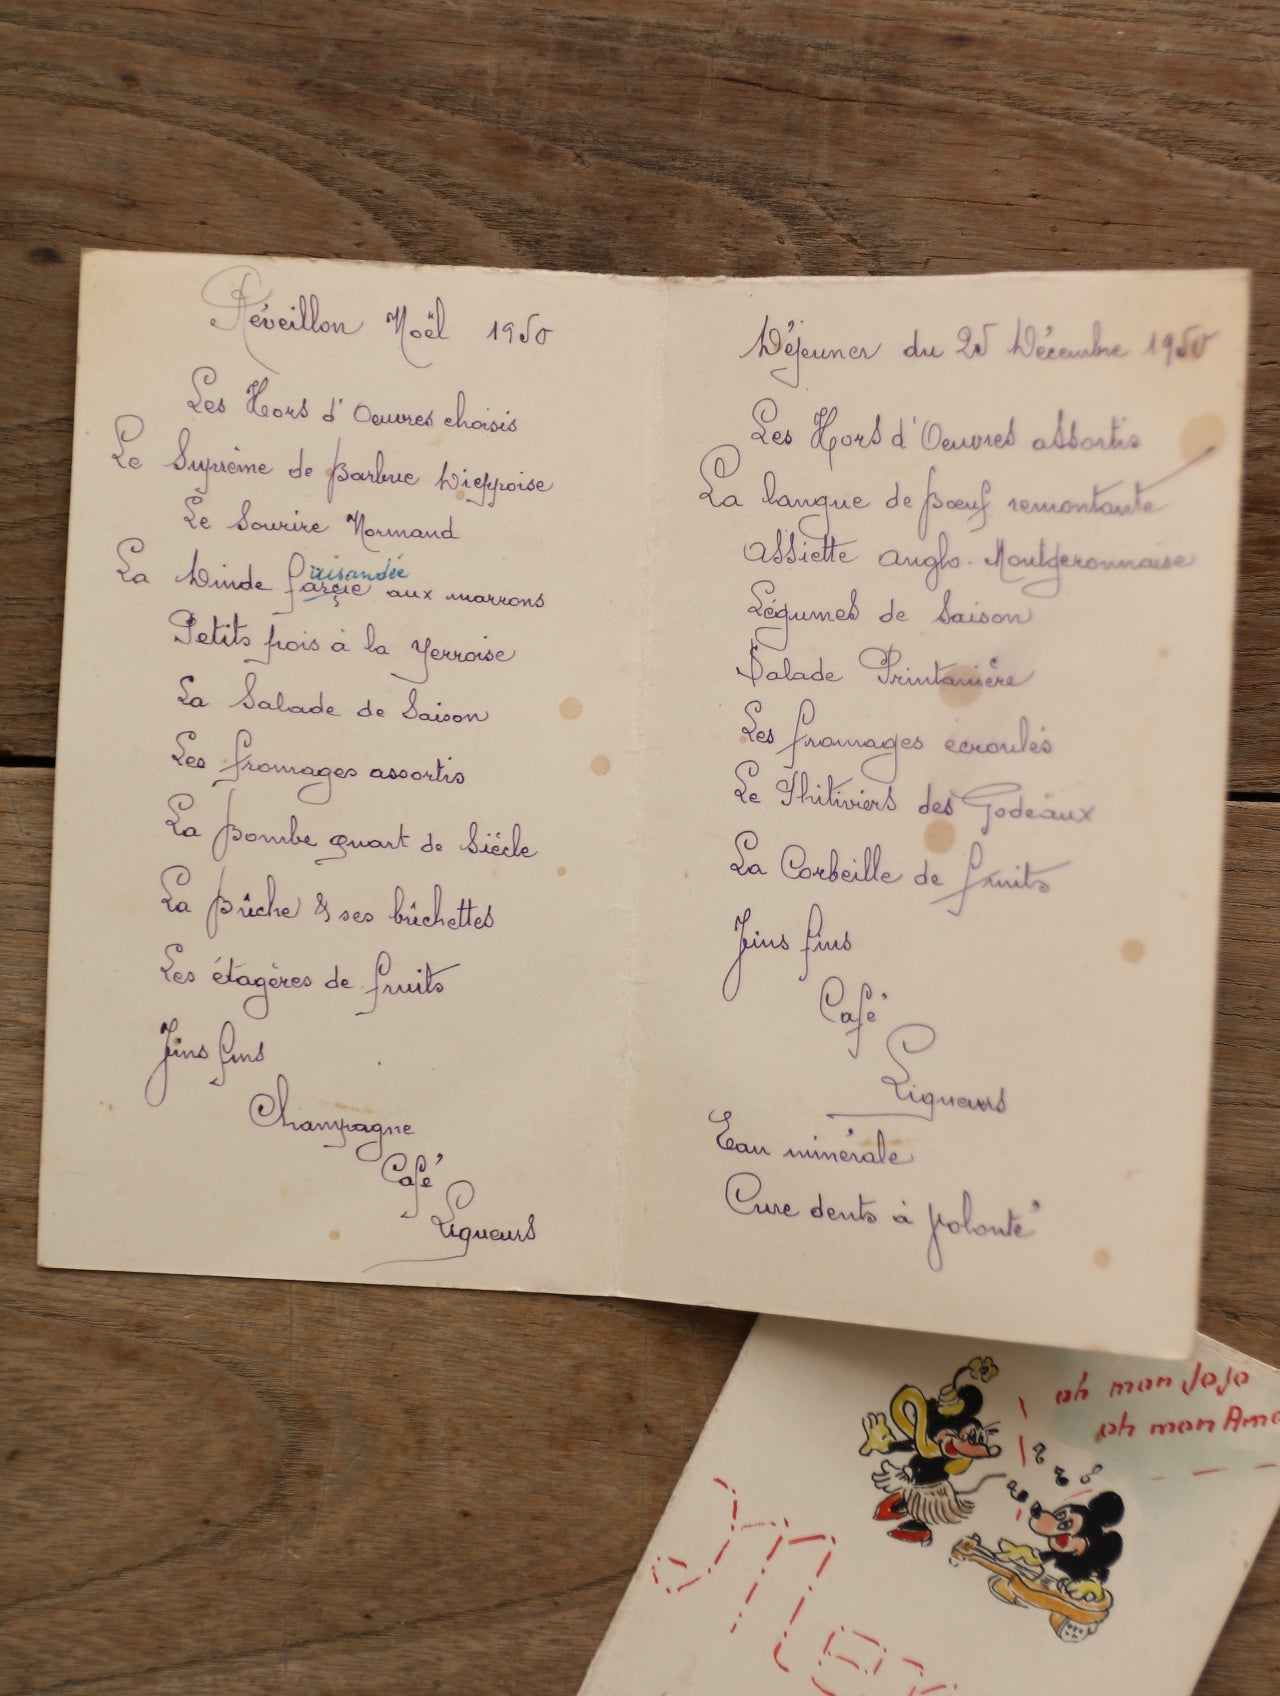 Réveillon Noël 1950
Les Hors d'Oeuvres choisis
Le Suprème de Barbue Dieppoise
Le Sourire Normand
faisandée
La Dinde farcie aux marrons
Petits pois à la Yerroise
La Salade de Saison
Les fromages assortis
La Bombe quart de Siècle
La Bûche & ses bûchettes
Les étagères de fruits
Vins fins
Champagne
Café
Liqueurs
Déjeuner du 25 Décembre 1950
Les Hors d'Oeuvres assortis
La langue de Boeuf remontante
Assiette anglo-Montgeronnaise
Légumes de Saison
Salade Printanière
Les fromages écroulés
Le Phitiviers des Godeaux
La Corbeille de fruits
Vins fins
Café
Liqueurs
Eau minérale
Cure dents à volonté
oh mon JoJo
oh mon Amo